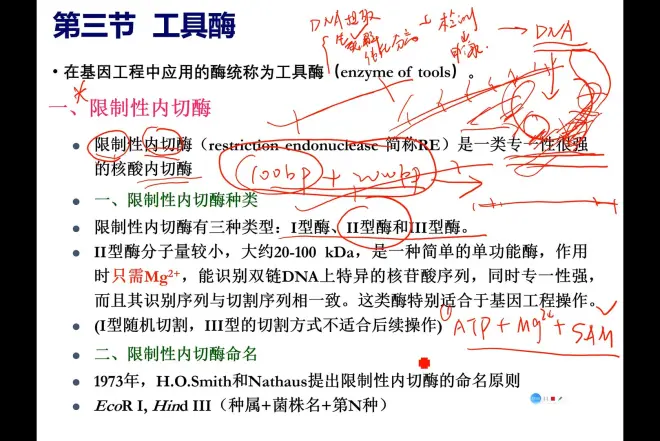 第三节 工具酶
DNA提取
检测
DNA
• 在基因工程中应用的酶统称为工具酶（enzyme of tools）。
一、限制性内切酶
限制性内切酶（restriction endonuclease 简称RE）是一类专一性很强
的核酸内切酶
100bp +
一、限制性内切酶种类
限制性内切酶有三种类型：I型酶、II型酶和III型酶。
II型酶分子量较小，大约20-100 kDa，是一种简单的单功能酶，作用
时只需Mg²⁺，能识别双链DNA上特异的核苷酸序列，同时专一性强，
而且其识别序列与切割序列相一致。这类酶特别适合于基因工程操作。
(I型随机切割，III型的切割方式不适合后续操作)
① ATP + Mg²⁺ + SAM
二、限制性内切酶命名
1973年，H.O.Smith和Nathaus提出限制性内切酶的命名原则
EcoR I, Hind III（种属+菌株名+第N种）